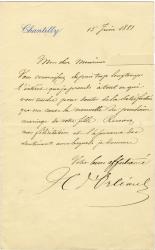 Chantilly
15 Juin 1881
Mon cher Monsieur
Vous connaissez depuis trop longtemps
l'intérêt que je prends à tout ce qui
vous touche pour douter de la satisfaction
que m'a causé la nouvelle du prochain
mariage de votre fille. Recevez
mes félicitations et l'assurance des
sentiments avec lesquels je demeure
Votre bien affectionné
H. d'Orléans